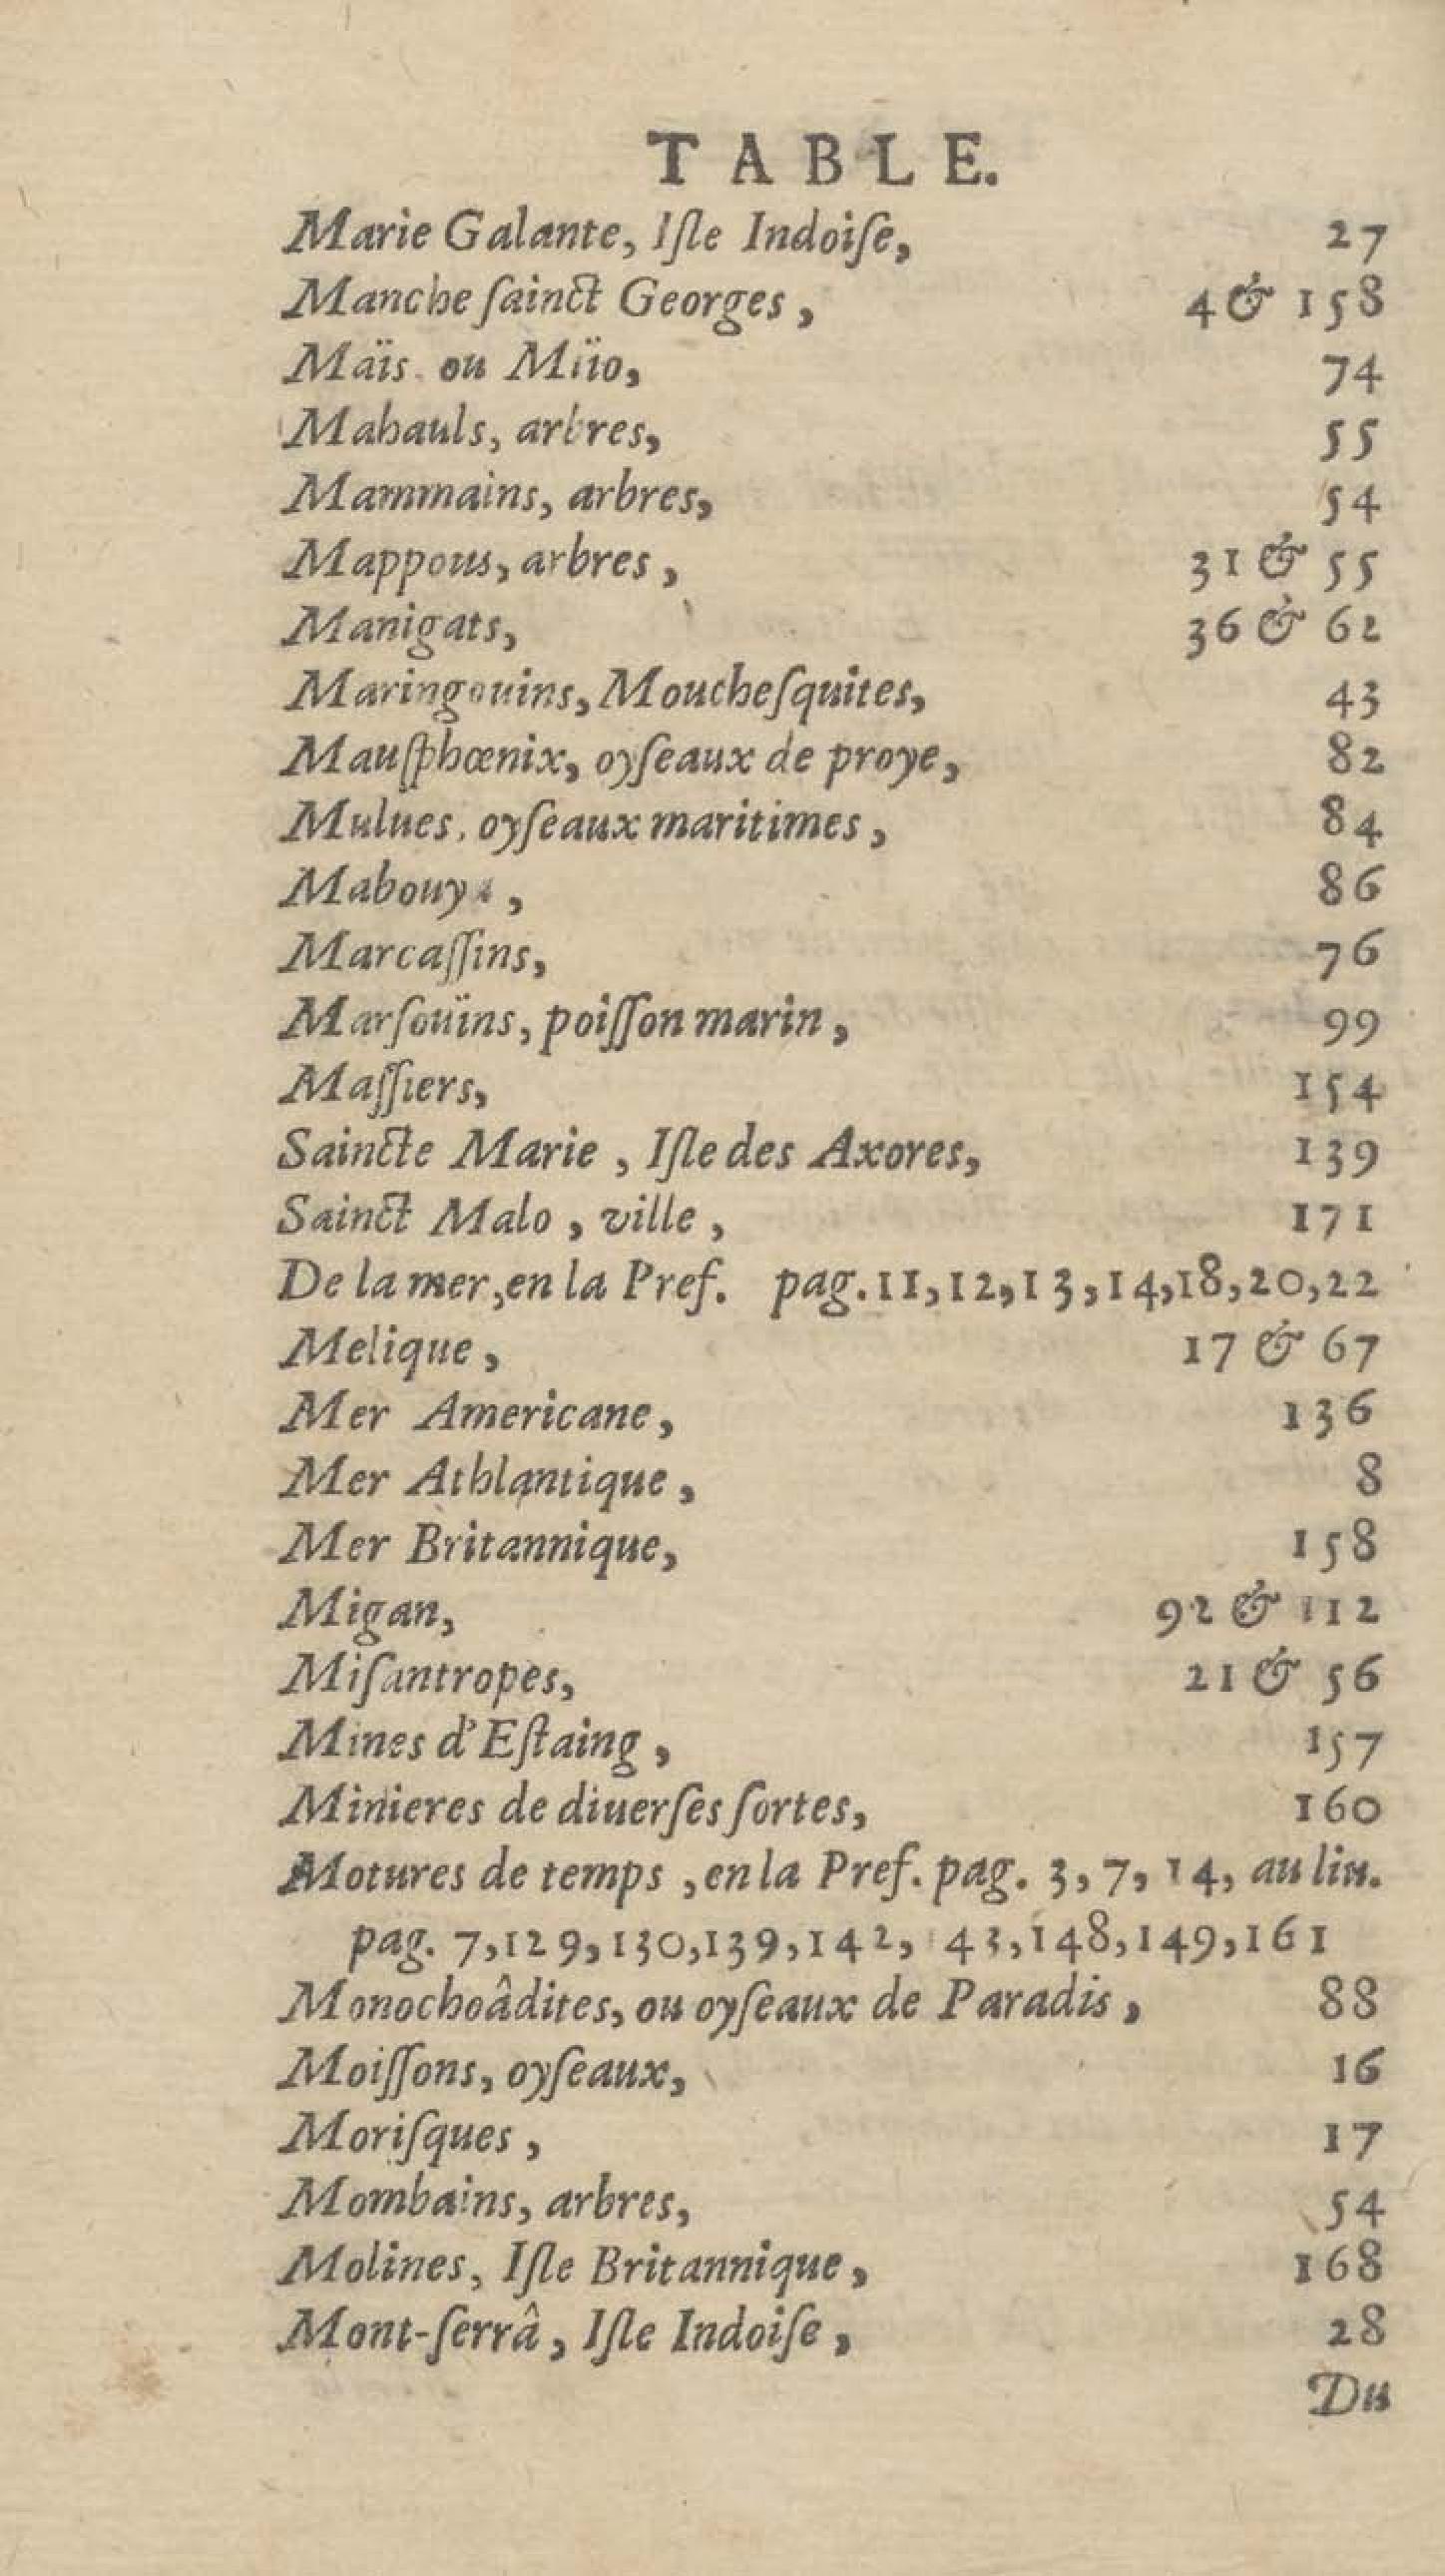 TABLE.
Marie Galante, Iſle Indoiſe, 27
Manche ſainct Georges, 4 & 158
Maïs ou Miïo, 74
Mahauls, arbres, 55
Mammains, arbres, 54
Mappous, arbres, 31 & 55
Manigats, 36 & 62
Maringouins, Moucheſquites, 43
Mauſphœnix, oyſeaux de proye, 82
Mulues, oyſeaux maritimes, 84
Mabouya, 86
Marcaſſins, 76
Marſoüins, poiſſon marin, 99
Maſſiers, 154
Saincte Marie, Iſle des Axores, 139
Sainct Malo, ville, 171
De la mer, en la Pref. pag. 11, 12, 13, 14, 18, 20, 22
Melique, 17 & 67
Mer Americane, 136
Mer Athlantique, 8
Mer Britannique, 158
Migan, 92 & 112
Miſantropes, 21 & 56
Mines d'Eſtaing, 157
Minieres de diuerſes ſortes, 160
Motures de temps, en la Pref. pag. 3, 7, 14, au liu.
pag. 7, 129, 130, 139, 142, 143, 148, 149, 161
Monochoâdites, ou oyſeaux de Paradis, 88
Moiſſons, oyſeaux, 16
Moriſques, 17
Mombains, arbres, 54
Molines, Iſle Britannique, 168
Mont-ſerrâ, Iſle Indoiſe, 28
Du